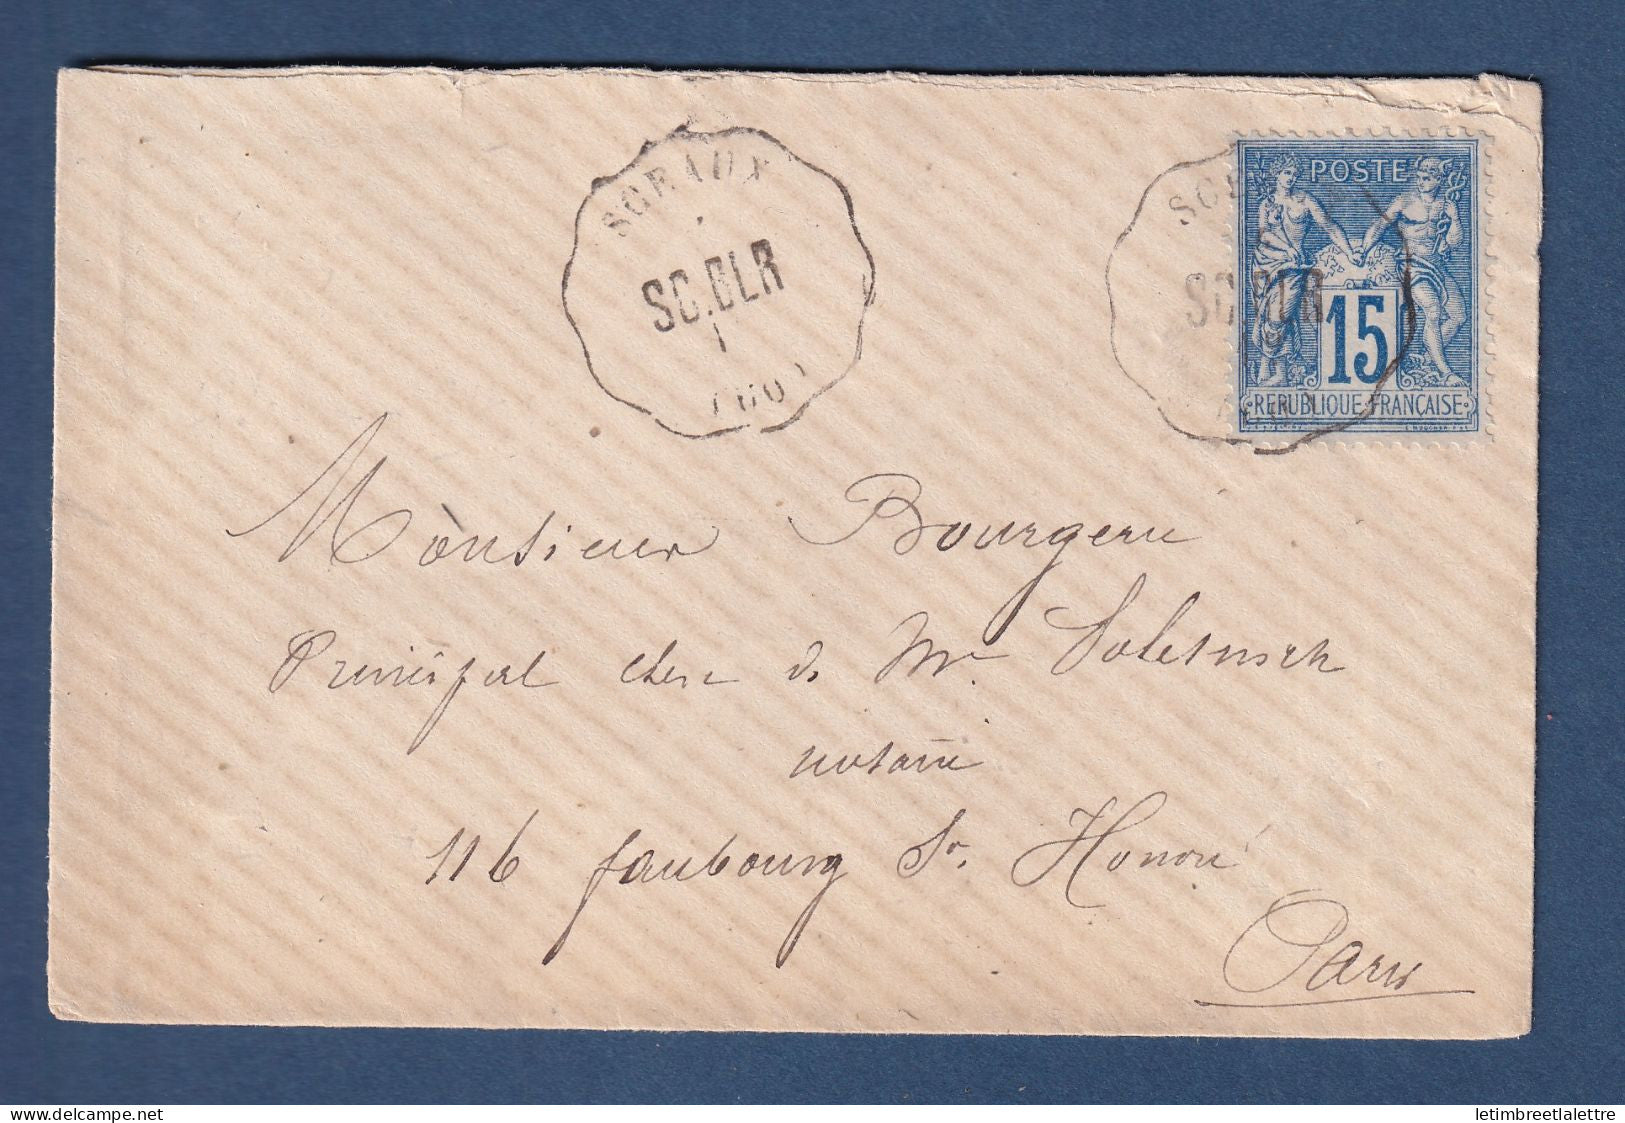 SCEAUX
SC.BLR
1
POSTE
SC.BLR
15
REPUBLIQUE FRANÇAISE
Monsieur Bourgerie
Principal clerc de Mr
notaire
116 faubourg St. Honoré
Paris
delcampe.net
letimbreetlalettre